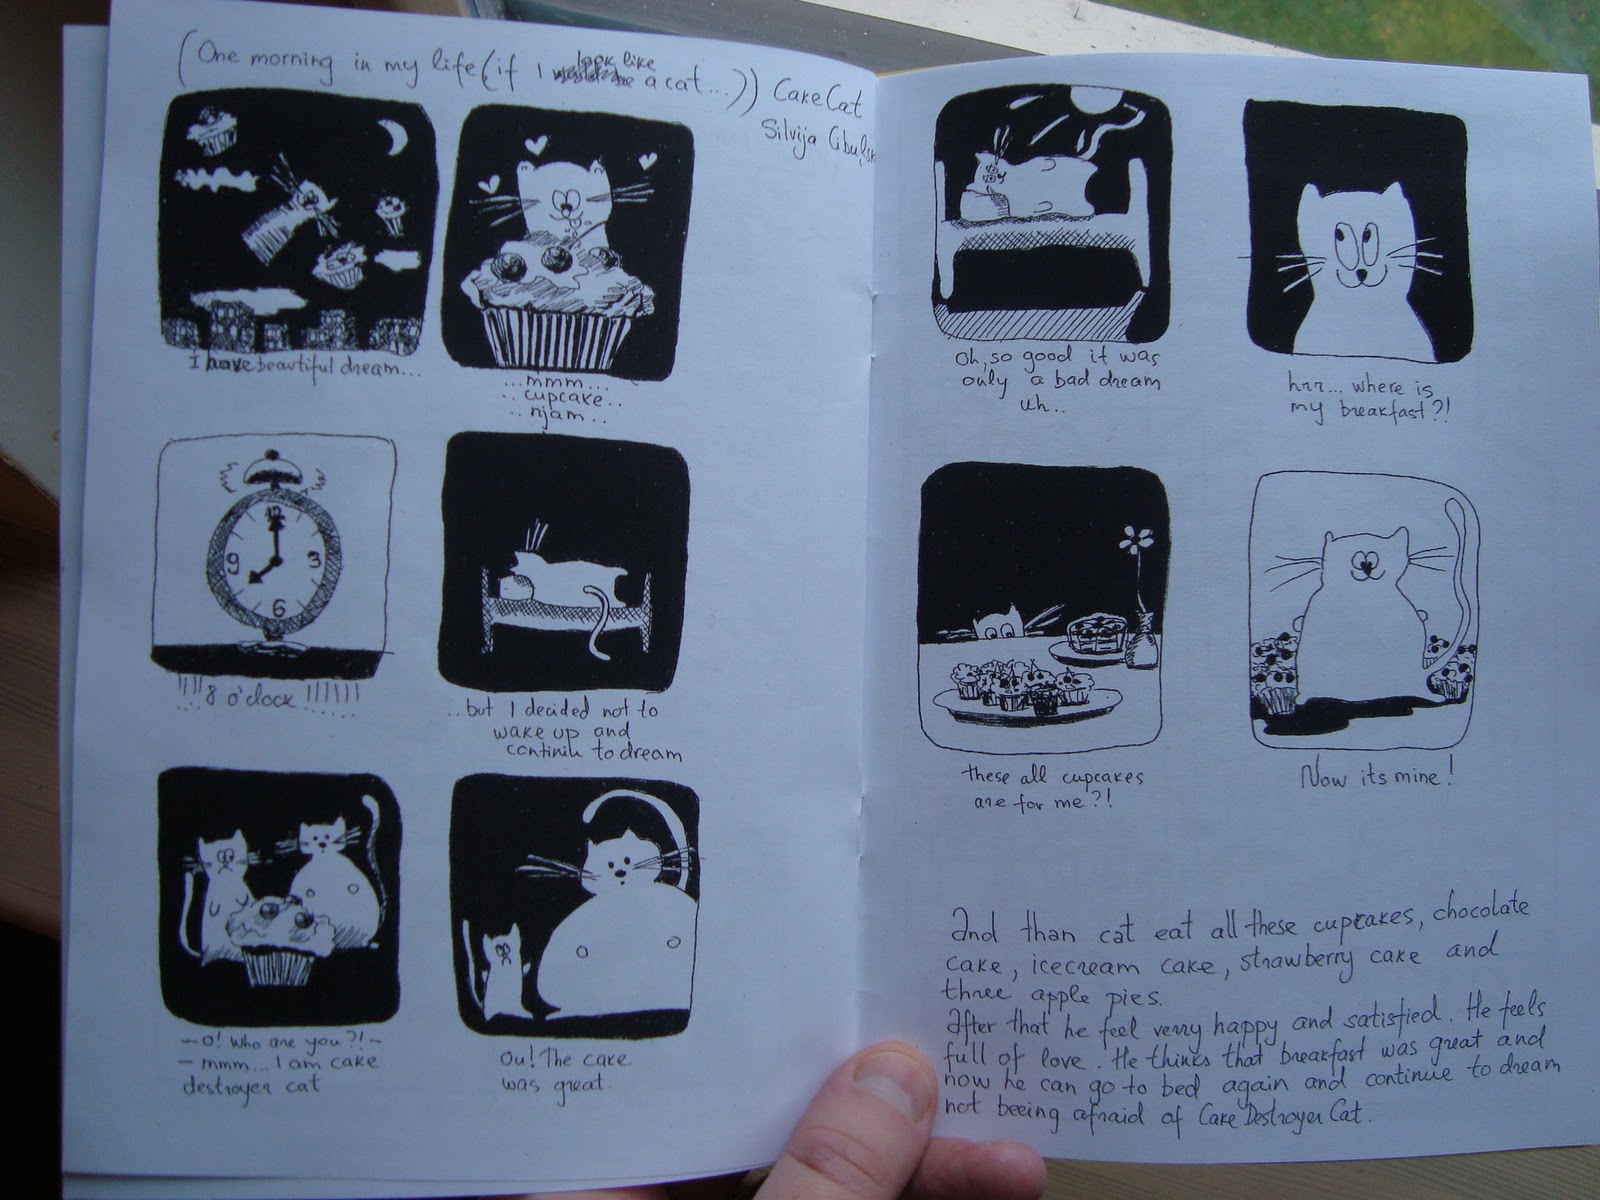 (One morning in my life (if I look like a cat...)) Cake Cat
Silvija
I have beautiful dream...
...mmm...
..cupcake..
..njam..
12
9
3
6
!!!!8 o'clock!!!!!!
..but I decided not to
wake up and
continiu to dream
- O! Who are you?! -
- mmm... I am cake
destroyer cat
Ou! The cake
was great.
Oh, so good it was
only a bad dream
uh..
hrr... where is
my breakfast?!
these all cupcakes
are for me?!
Now its mine!
And than cat eat all these cupcakes, chocolate
cake, icecream cake, strawberry cake and
three apple pies.
After that he feel verry happy and satisfied. He feels
full of love. He thinks that breakfast was great and
now he can go to bed again and continue to dream
not beeing afraid of Cake Destroyer Cat.